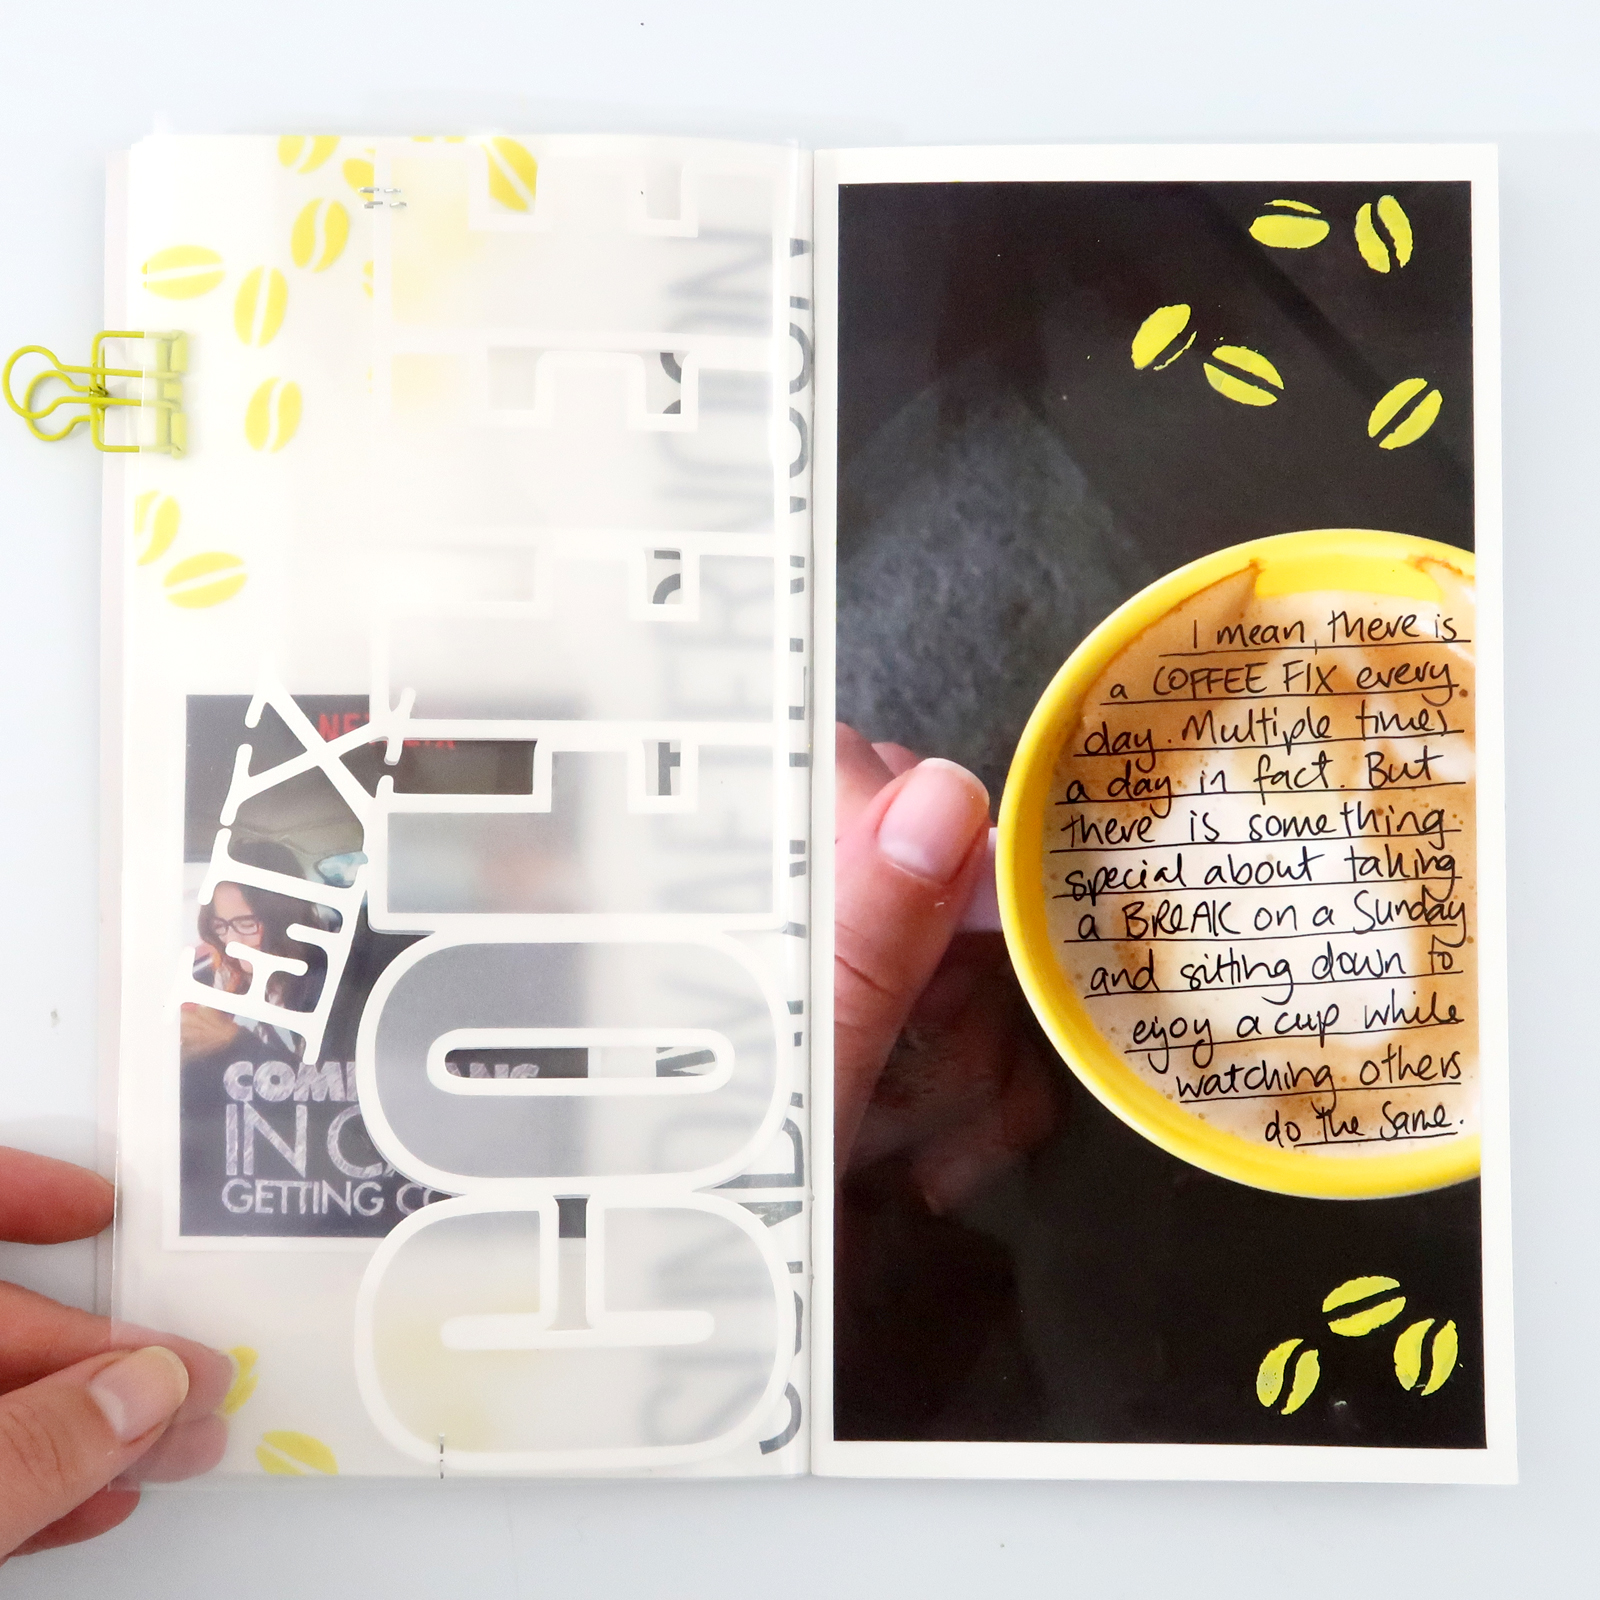 COFFEE
FIX
SUNDAY AFTERNOON
NETFLIX
COMEDIANS
IN CA
GETTING CO
I mean, there is
a COFFEE FIX every
day. Multiple times
a day in fact. But
there is something
special about taking
a BREAK on a Sunday
and sitting down to
ejoy a cup while
watching others
do the same.